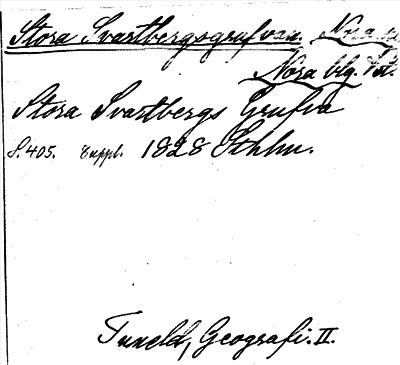 Stora Svartbergsgrufvan. Nora
Nora blg. Vst.
Stora Svartbergs Grufva
S. 405. Suppl. 1828 Sthlm.
Tuneld, Geografi. II.